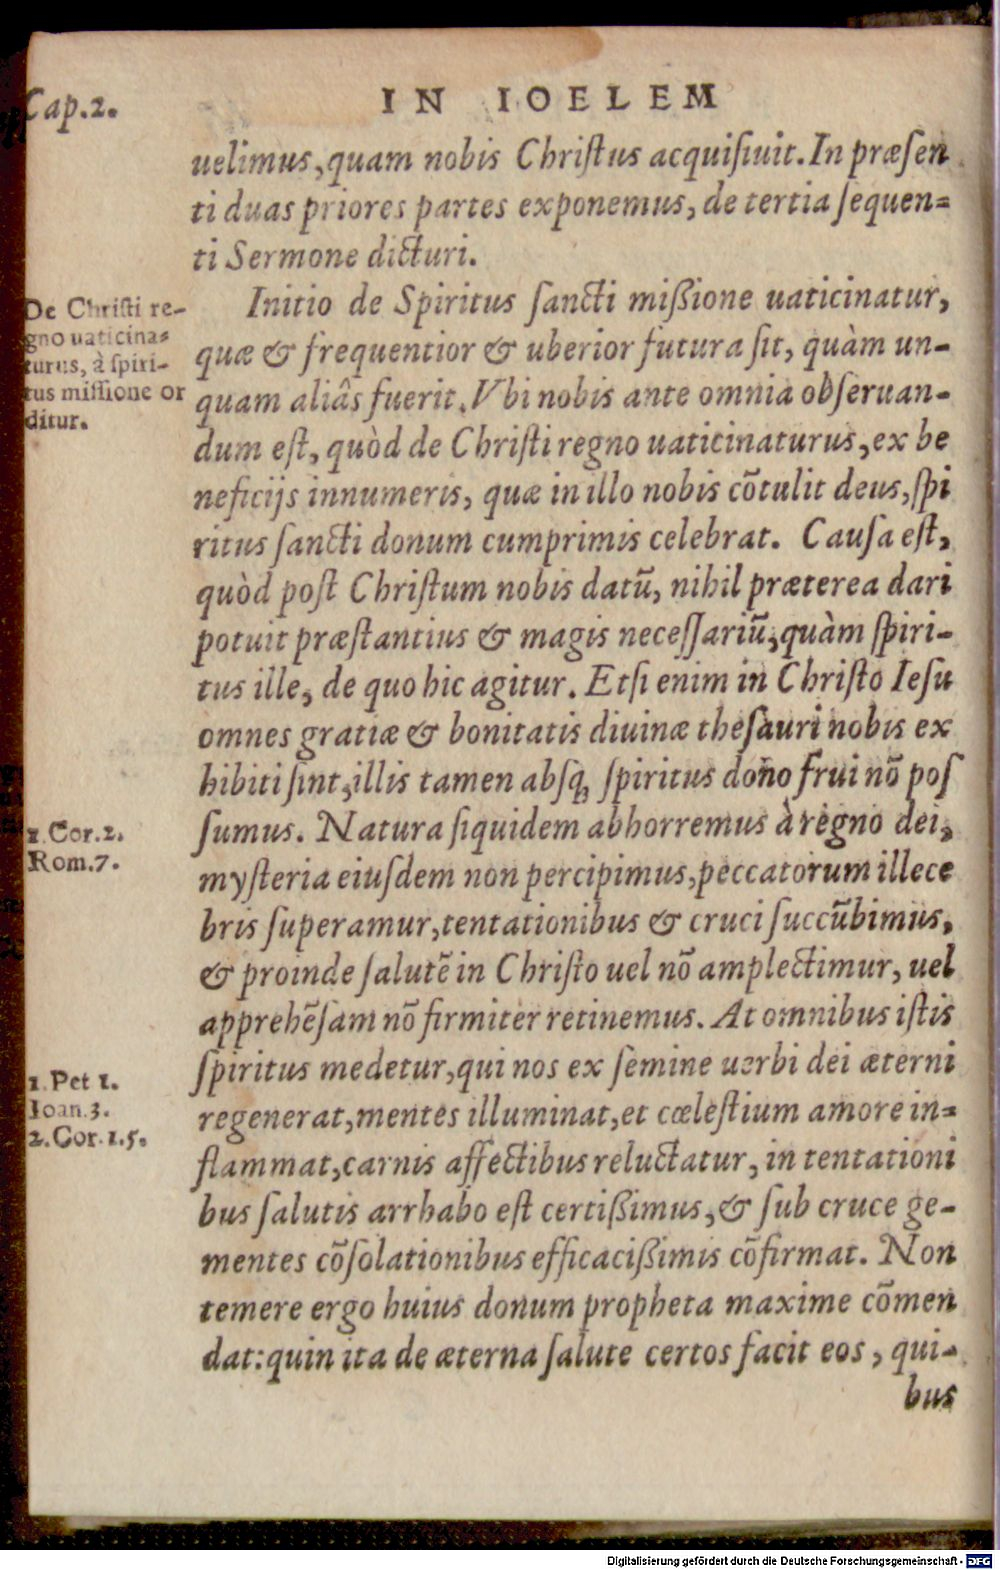 Cap.2.
IN IOELEM
uelimus, quam nobis Chriſtus acquiſiuit. In præſen
ti duas priores partes exponemus, de tertia ſequen=
ti Sermone dicturi.
De Chriſti re-
gno uaticina=
turus, à ſpiri-
tus miſſione or
ditur.
Initio de Spiritus ſancti mißione uaticinatur,
quæ & frequentior & uberior futura ſit, quàm un-
quam aliâs fuerit. Vbi nobis ante omnia obſeruan-
dum eſt, quòd de Chriſti regno uaticinaturus, ex be
neficijs innumeris, quæ in illo nobis cõtulit deus, ſpi
ritus ſancti donum cumprimis celebrat. Cauſa eſt,
quòd poſt Chriſtum nobis datũ, nihil præterea dari
potuit præſtantius & magis neceſſariũ, quàm ſpiri-
tus ille, de quo hic agitur. Etſi enim in Chriſto Ieſu
omnes gratiæ & bonitatis diuinæ theſauri nobis ex
hibiti ſint, illis tamen abſq; ſpiritus dono frui nõ poſ
1.Cor.2.
Rom.7.
ſumus. Natura ſiquidem abhorremus à regno dei,
myſteria eiuſdem non percipimus, peccatorum illece
bris ſuperamur, tentationibus & cruci ſuccũbimus,
& proinde ſalutẽ in Chriſto uel nõ amplectimur, uel
apprehẽſam nõ firmiter retinemus. At omnibus iſtis
1.Pet 1.
Ioan.3.
2.Cor.1.5.
ſpiritus medetur, qui nos ex ſemine uerbi dei æterni
regenerat, mentes illuminat, et cœleſtium amore in=
flammat, carnis affectibus reluctatur, in tentationi
bus ſalutis arrhabo eſt certißimus, & ſub cruce ge-
mentes cõſolationibus efficacißimis cõfirmat. Non
temere ergo huius donum propheta maxime cõmen
dat: quin ita de æterna ſalute certos facit eos, qui-
bus
Digitalisierung gefördert durch die Deutsche Forschungsgemeinschaft - DFG